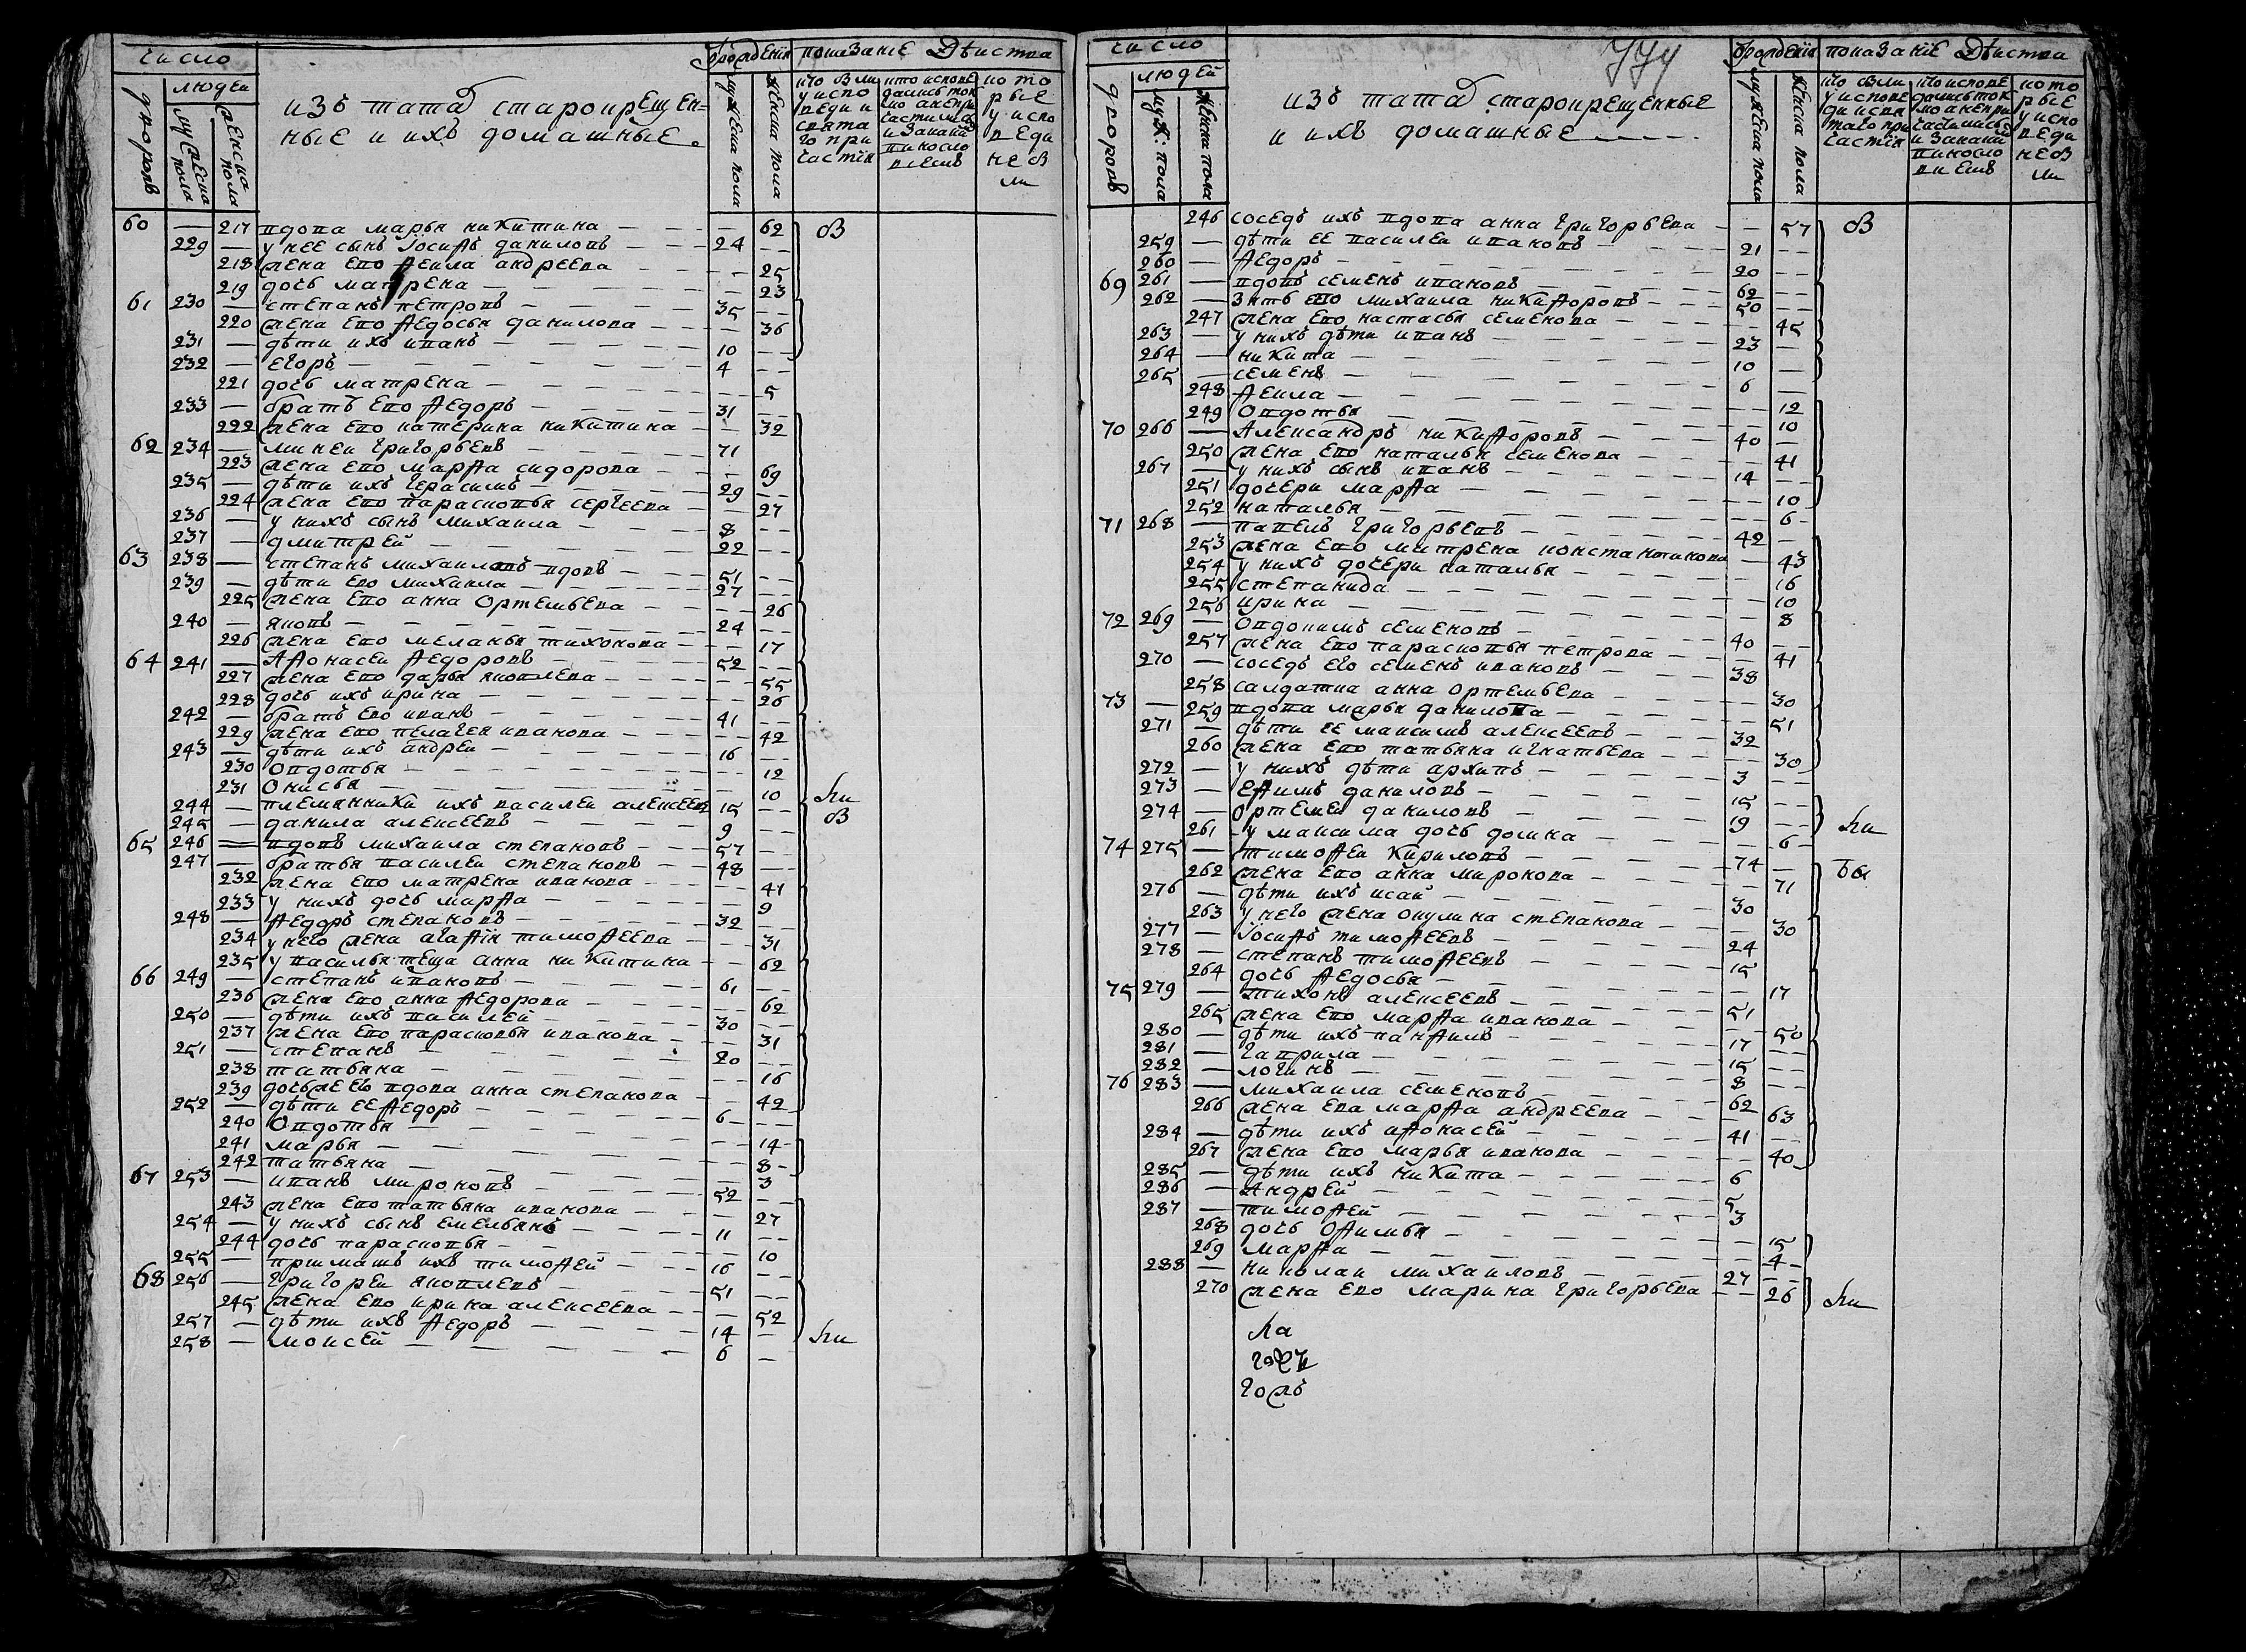 число
людей
дворовъ
мужеска пола
женска пола
изъ татаръ старокрещен-
ные и ихъ домашные.
от рождения
мужеска пола
женска пола
показание действа
кто был у исповеди и святаго причастия
кто исповедались токмо а не причастились и за каким винословием
которые у исповеди не были
60 — 217 вдова марья никитина — 62 был
229 — у нее сынъ iосифъ даниловъ 24 —
218 жена ево фекла андреева — 25
219 дочь матрена — 23
61 230 — степанъ петровъ 35 —
220 жена ево федосья данилова — 36
231 — дѣти ихъ иванъ 10 —
232 — егоръ 4 —
221 дочь матрена — 5
233 — братъ ево федоръ 31 —
222 жена ево катерина никитина — 32
62 234 — миней григорьевъ 71
223 жена ево марфа сидорова — 69
235 — дѣти ихъ герасимъ 29 —
224 жена ево парасковья сергеева — 27
236 — у нихъ сынъ михаила 8 —
237 — дмитрей 22 —
63 238 — степанъ михаиловъ вдовъ 51 —
239 — дѣти ево михаила 27 —
225 жена ево анна ортемьева — 26
240 — яковъ 24 —
226 жена ево меланья тихонова — 17
64 241 — афонасеи федоровъ 52 —
227 жена ево дарья яковлева — 55
228 дочь ихъ ирина — 26
242 — братъ ево иванъ 41 —
229 жена ево пелагея иванова — 42
243 — дѣти ихъ андреи 16 —
230 овдотья — 12
231 онисья — 10
244 — племянники ихъ василеи алексеевъ 15 —
245 — данила алексеевъ 9 —
65 246 — вдовъ михаила степановъ 57 —
247 — братья василеи степановъ 48 —
232 жена ево матрена иванова — 41
233 у нихъ дочь марфа — 9
248 — федоръ степановъ 32 —
234 у него жена агафiя тимофеева — 31
235 у василья теща анна никитина — 62
66 249 — степанъ ивановъ 61 —
236 жена ево анна федорова — 62
250 — дѣти ихъ василей 30 —
237 жена ево парасковья иванова — 31
251 — степанъ 20 —
238 татьяна — 16
239 дочь же его вдова анна степанова — 42
252 — дѣти ее федоръ 6 —
240 овдотья — 14
241 марья — 8
242 татьяна — 3
67 253 — иванъ мироновъ 52 —
243 жена ево татьяна иванова — 27
254 — у нихъ сынъ емельянъ 11 —
244 дочь парасковья — 10
255 — примашъ ихъ тимофей 16 —
68 256 — григореи яковлевъ 51 —
245 жена ево ирина алексеева — 52
257 — дѣти ихъ федоръ 14 —
258 — моисей 6 —
число
людей
дворовъ
муж: пола
женска пола
изъ татаръ старокрещенные
и ихъ домашные
от рождения
мужеска пола
женска пола
показание действа
кто были у исповеди и святаго причастия
кто исповедались токмо а не причастились и за каким винословием
которые у исповеди не были
246 соседъ ихъ вдова анна григорьева — 57
259 — дѣти ее василеи ивановъ 21 —
260 — федоръ 20 —
69 261 — вдовъ семенъ ивановъ 62 —
262 — зять ево михаила никифоровъ 50 —
247 жена ево настасья семенова — 45
263 — у нихъ дѣти иванъ 23 —
264 — никита 10 —
265 — семенъ 6 —
248 фекла — 12
249 овдотья — 10
70 266 — александръ никифоровъ 40 —
250 жена ево наталья семенова — 41
267 — у нихъ сынъ иванъ 14 —
251 дочери марфа — 10
252 наталья — 6
71 268 — павелъ григорьевъ 42 —
253 жена ево матрена константинова — 43
254 у нихъ дочери наталья — 16
255 степанида — 10
256 ирина — 8
72 269 — овдокимъ семеновъ 40 —
257 жена ево парасковья петрова — 41
270 — соседъ его семенъ ивановъ 38
258 салдатка анна ортемьева — 30
73 — 259 вдова марья данилова — 51
271 — дѣти ее максимъ алексеевъ 32
260 жена ево татьяна игнатьева — 30
272 — у нихъ дѣти архипъ 3 —
273 — ефимъ даниловъ 15 —
274 — ортемеи даниловъ 19 —
261 у максима дочь домна — 6
74 275 — тимофеи кириловъ 74 —
262 жена ево анна миронова — 71
276 — дѣти ихъ исай 30
263 у него жена окулина степанова — 30
277 — iосифъ тимофеевъ 24
278 — степанъ тимофеевъ 15
264 дочь федосья — 17
75 279 — тихонъ алексеевъ 51
265 жена ево марфа иванова — 50
280 — дѣти ихъ панфилъ 17 —
281 — гаврила 15 —
282 — логинъ 8 —
76 283 — михаила семеновъ 62
266 жена ева марфа андреева — 63
284 — дѣти ихъ афонасей 41 —
267 жена ево марья иванова — 40
285 — дѣти ихъ никита 6
286 — андрей 5
287 — тимофей 3
268 дочь офимья — 15
269 марфа — 4
288 — николаи михаиловъ 27 —
270 жена ево марина григорьева — 26